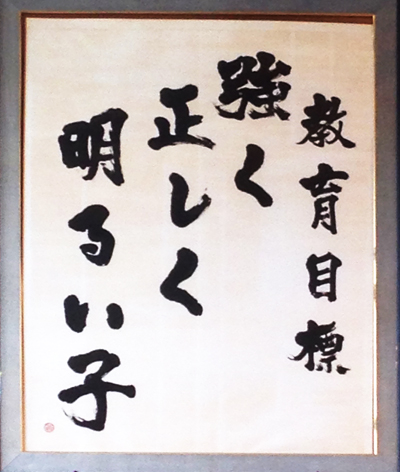 教育目標
強く
正しく
明るい子